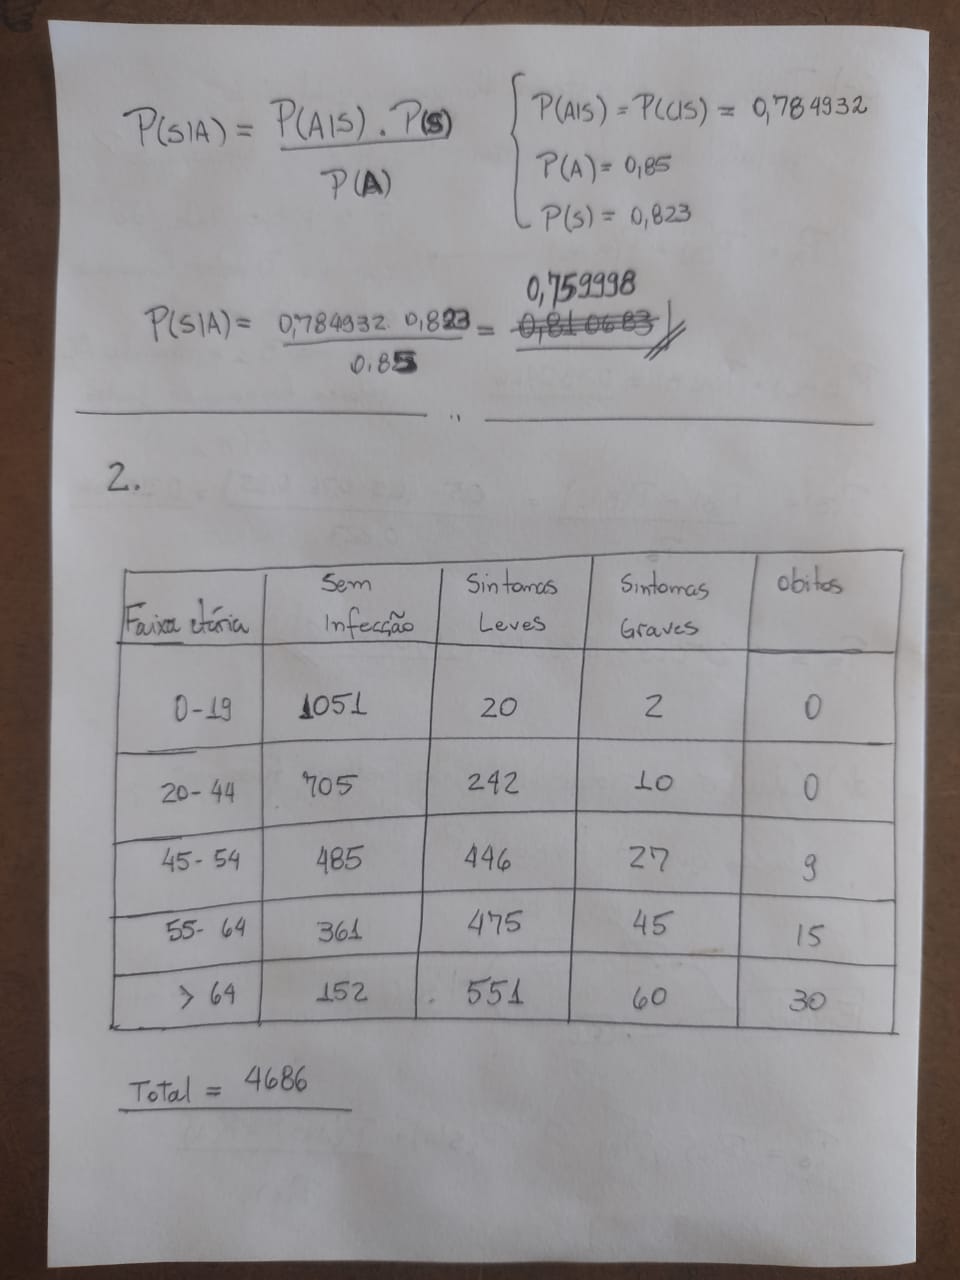 P(S|A) = P(A|S) . P(S) / P(A)
P(A|S) = P(C|S) = 0,784932
P(A) = 0,85
P(S) = 0,823
P(S|A) = 0,784932. 0,823 / 0.85 = 0,759998
0,810683
2.
Faixa etária Sem Infecção Sintomas Leves Sintomas Graves Obitos
0-19 1051 20 2 0
20-44 705 242 10 0
45-54 485 446 27 9
55-64 361 475 45 15
> 64 152 551 60 30
Total = 4686